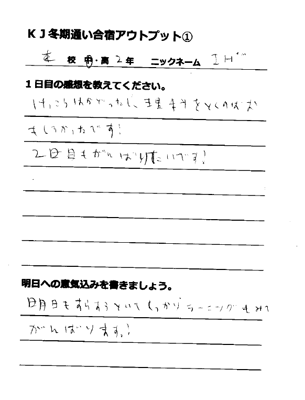 KJ冬期通い合宿アウトプット①
本 校 中・高 2年 ニックネーム エド
1日目の感想を教えてください。
けっこうはかどったし、
をとくのはお
もしろかったです!
2日目もがんばりたいです!
明日への意気込みを書きましょう。
明日もすらすらといてしっかりラーニングもみて
がんばります!